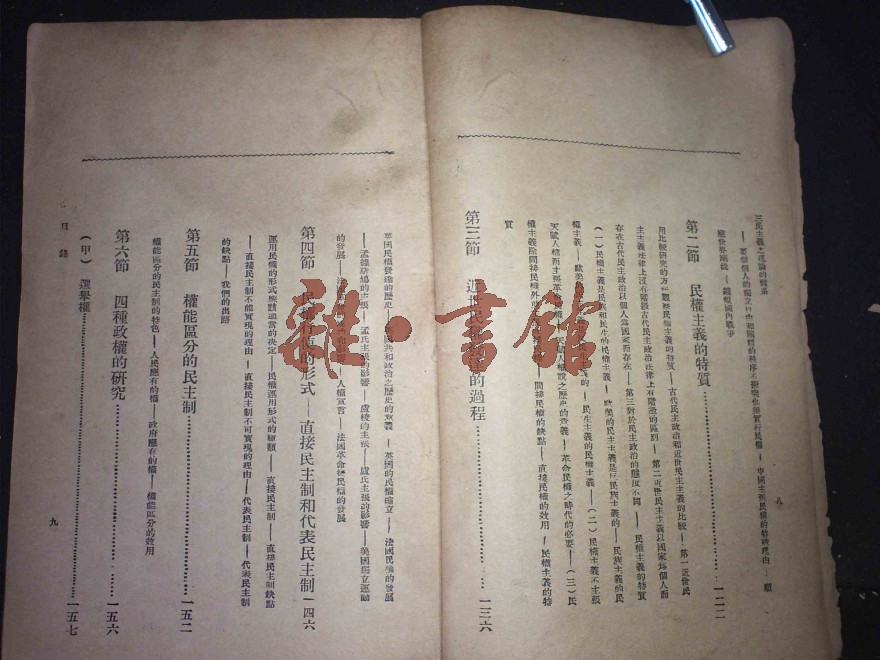 三民主義之理論的體系
應世界潮流 — 縮短國內戰爭
第二節 民權主義的特質…………一二二
用比較研究的方法觀察民權主義的特質 — 古代民主政治和近世民主主義的比較 — 第一近世民
主主義法律上沒有階級古代民主政治法律上有階級的區別 — 第二近世民主主義以國家為個人而
存在古代民主政治以個人為國家而存在 — 第三對於民主政治的態度不同 — 民權主義的特質
(一)民權主義是民族和民生的民權主義 — 歐美的民主主義是反民族主義的 — 民族主義的民
權主義 — 歐美 — 民生主義的民權主義 — (二)民權主義不主張
天賦人權而主張革 之歷史的意義 — 革命民權之時代的必要 — (三)民
權主義除間接民權外 — 間接民權的缺點 — 直接民權的效用 — 民權主義的特
質
第三節 近世 的過程…………一三六
八
英國民權發達的歷史 — 共和政治之歷史的意義 — 英國的民權確立 — 法國民權的發展
— 孟德斯鳩的主張 — 孟氏主張的影響 — 盧梭的主張 — 盧氏主張的影響 — 美國獨立運動
的發展 — 人權宣言 — 法國革命後民權的發展
第四節 民權行使的形式 — 直接民主制和代表民主制 一四六
運用民權的形式應該適當的決定 — 民權運用形式的種類 — 直接民主制 — 直接民主制缺點
— 直接民主制不能實現的理由 — 直接民主制不可實現的理由 — 代表民主制 — 代表民主制
的缺點 — 我們的出路
第五節 權能區分的民主制…………一五二
權能區分的民主制的特色 — 人民應有的權 — 政府應有的權 — 權能區分的效用
第六節 四種政權的研究…………一五六
(甲)選舉權…………一五七
目錄
九
雜·書館